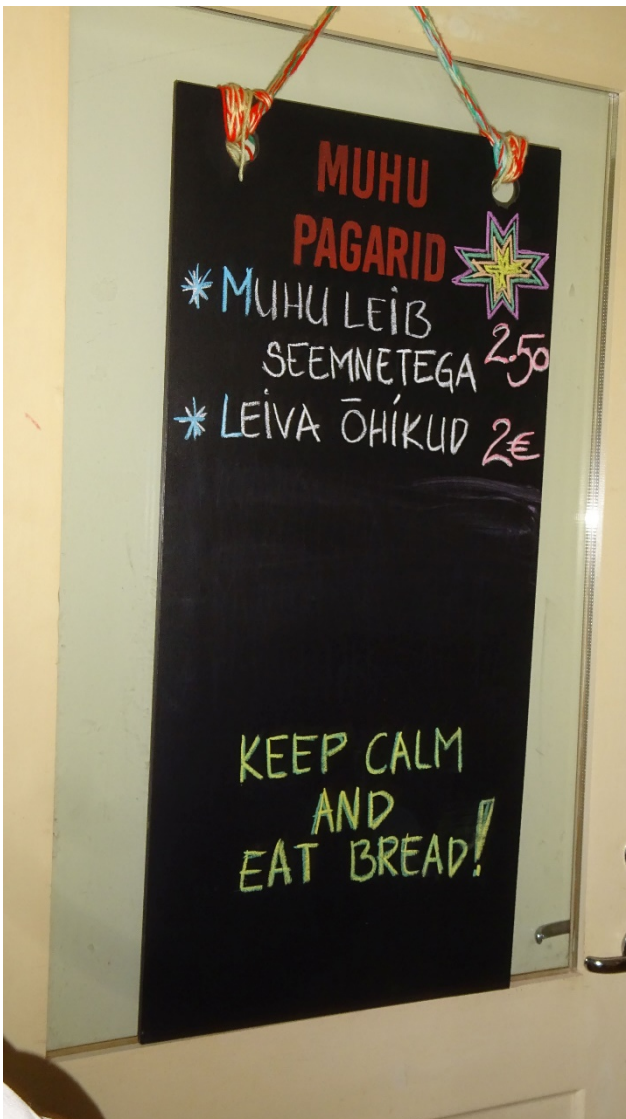 MUHU
PAGARID
* MUHU LEIB
SEEMNETEGA 2.50
* LEIVA ÕHIKUD 2€
KEEP CALM
AND
EAT BREAD!